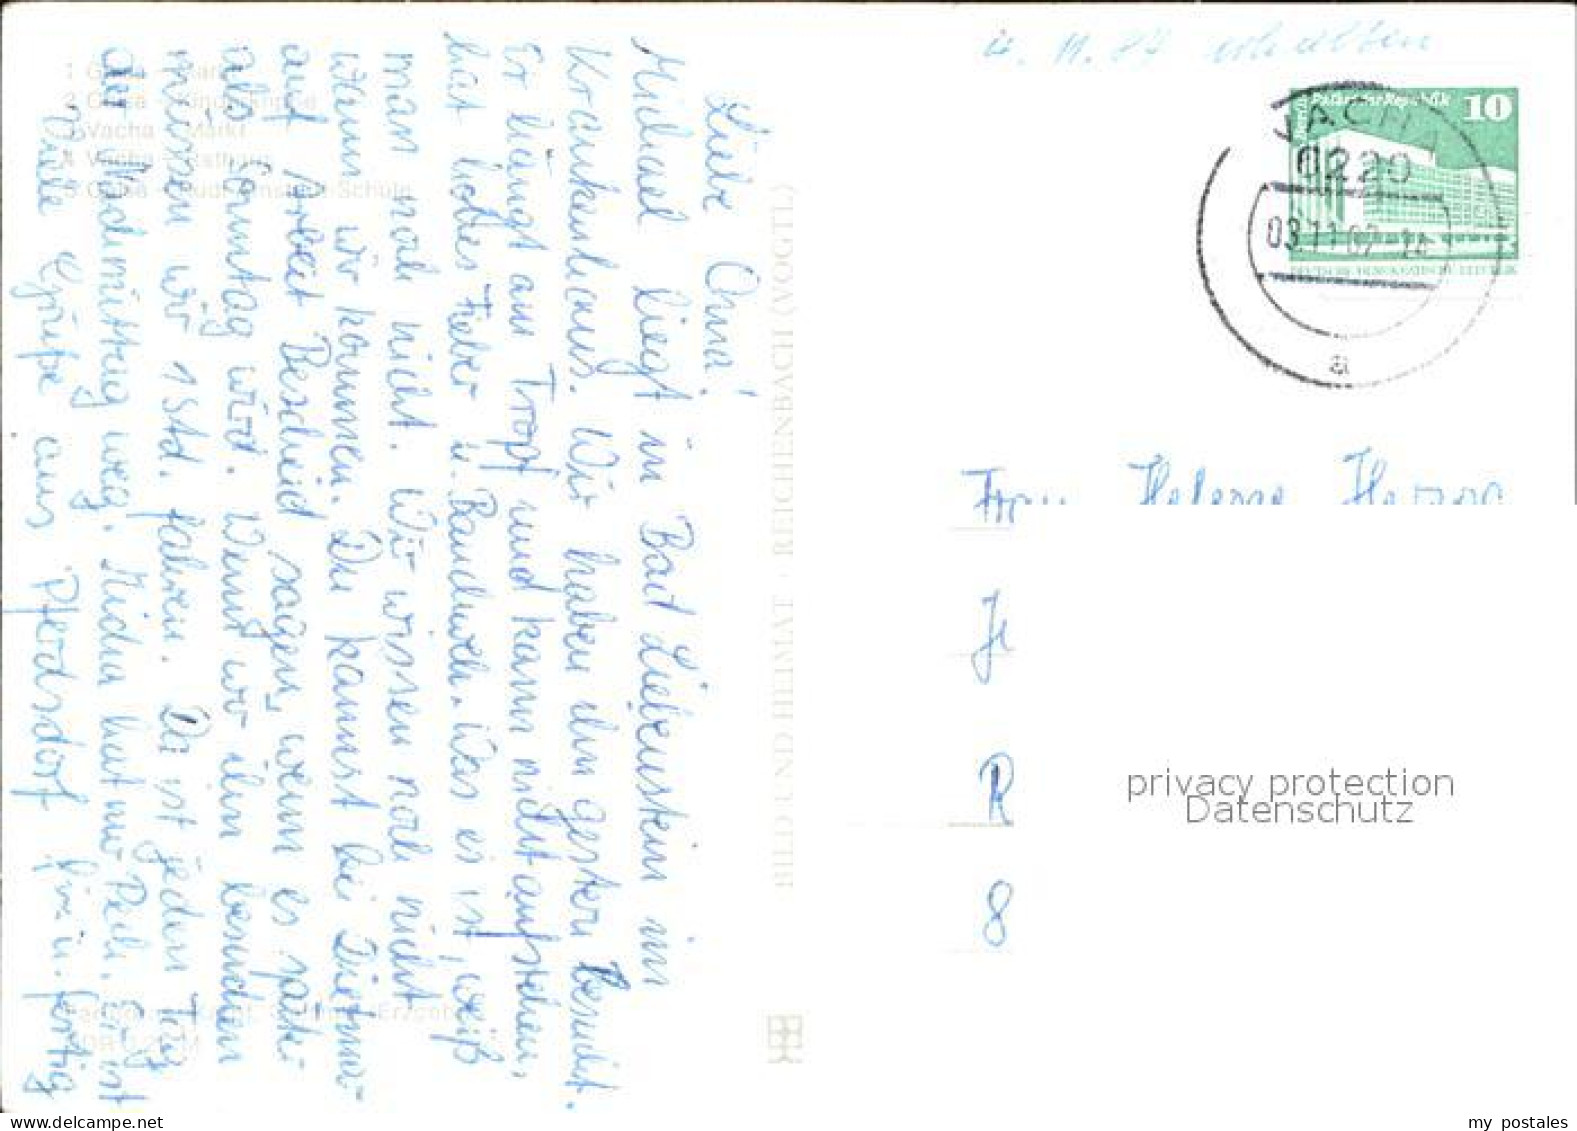 Liebe Oma!
Michael liegt in Bad Liebenstein im
Krankenhaus. Wir haben ihn gestern besucht.
Er hängt am Tropf und kann nicht aufstehen,
hat hohes Fieber u. Bauchweh. Was es ist, weiß
man noch nicht. Wir wissen noch nicht
wann wir kommen. Du kannst bei Dietmar
auf Arbeit Bescheid sagen, wenn es später
als Sonntag wird. Wenn wir ihn besuchen
müssen wir 1 Std. fahren. Da ist jeden Tag
der Nachmittag weg. Micha hat nur Pech. Er ist
Viele Grüße aus Pferdsdorf
fix u. fertig
1 Geisa - Markt
2 Geisa - Kinderkrippe
3 Vacha - Markt
4 Vacha - Rathaus
5 Geisa - Rudi-Arnstadt-Schule
BILD UND HEIMAT · REICHENBACH (VOGTL)
4. 11. 87 erhalten
Palast der Republik 10
DEUTSCHE DEMOKRATISCHE REPUBLIK
VACHA 1
6220
03.11.87
a
Frau Helene
R
8
privacy protection
Datenschutz
my postales